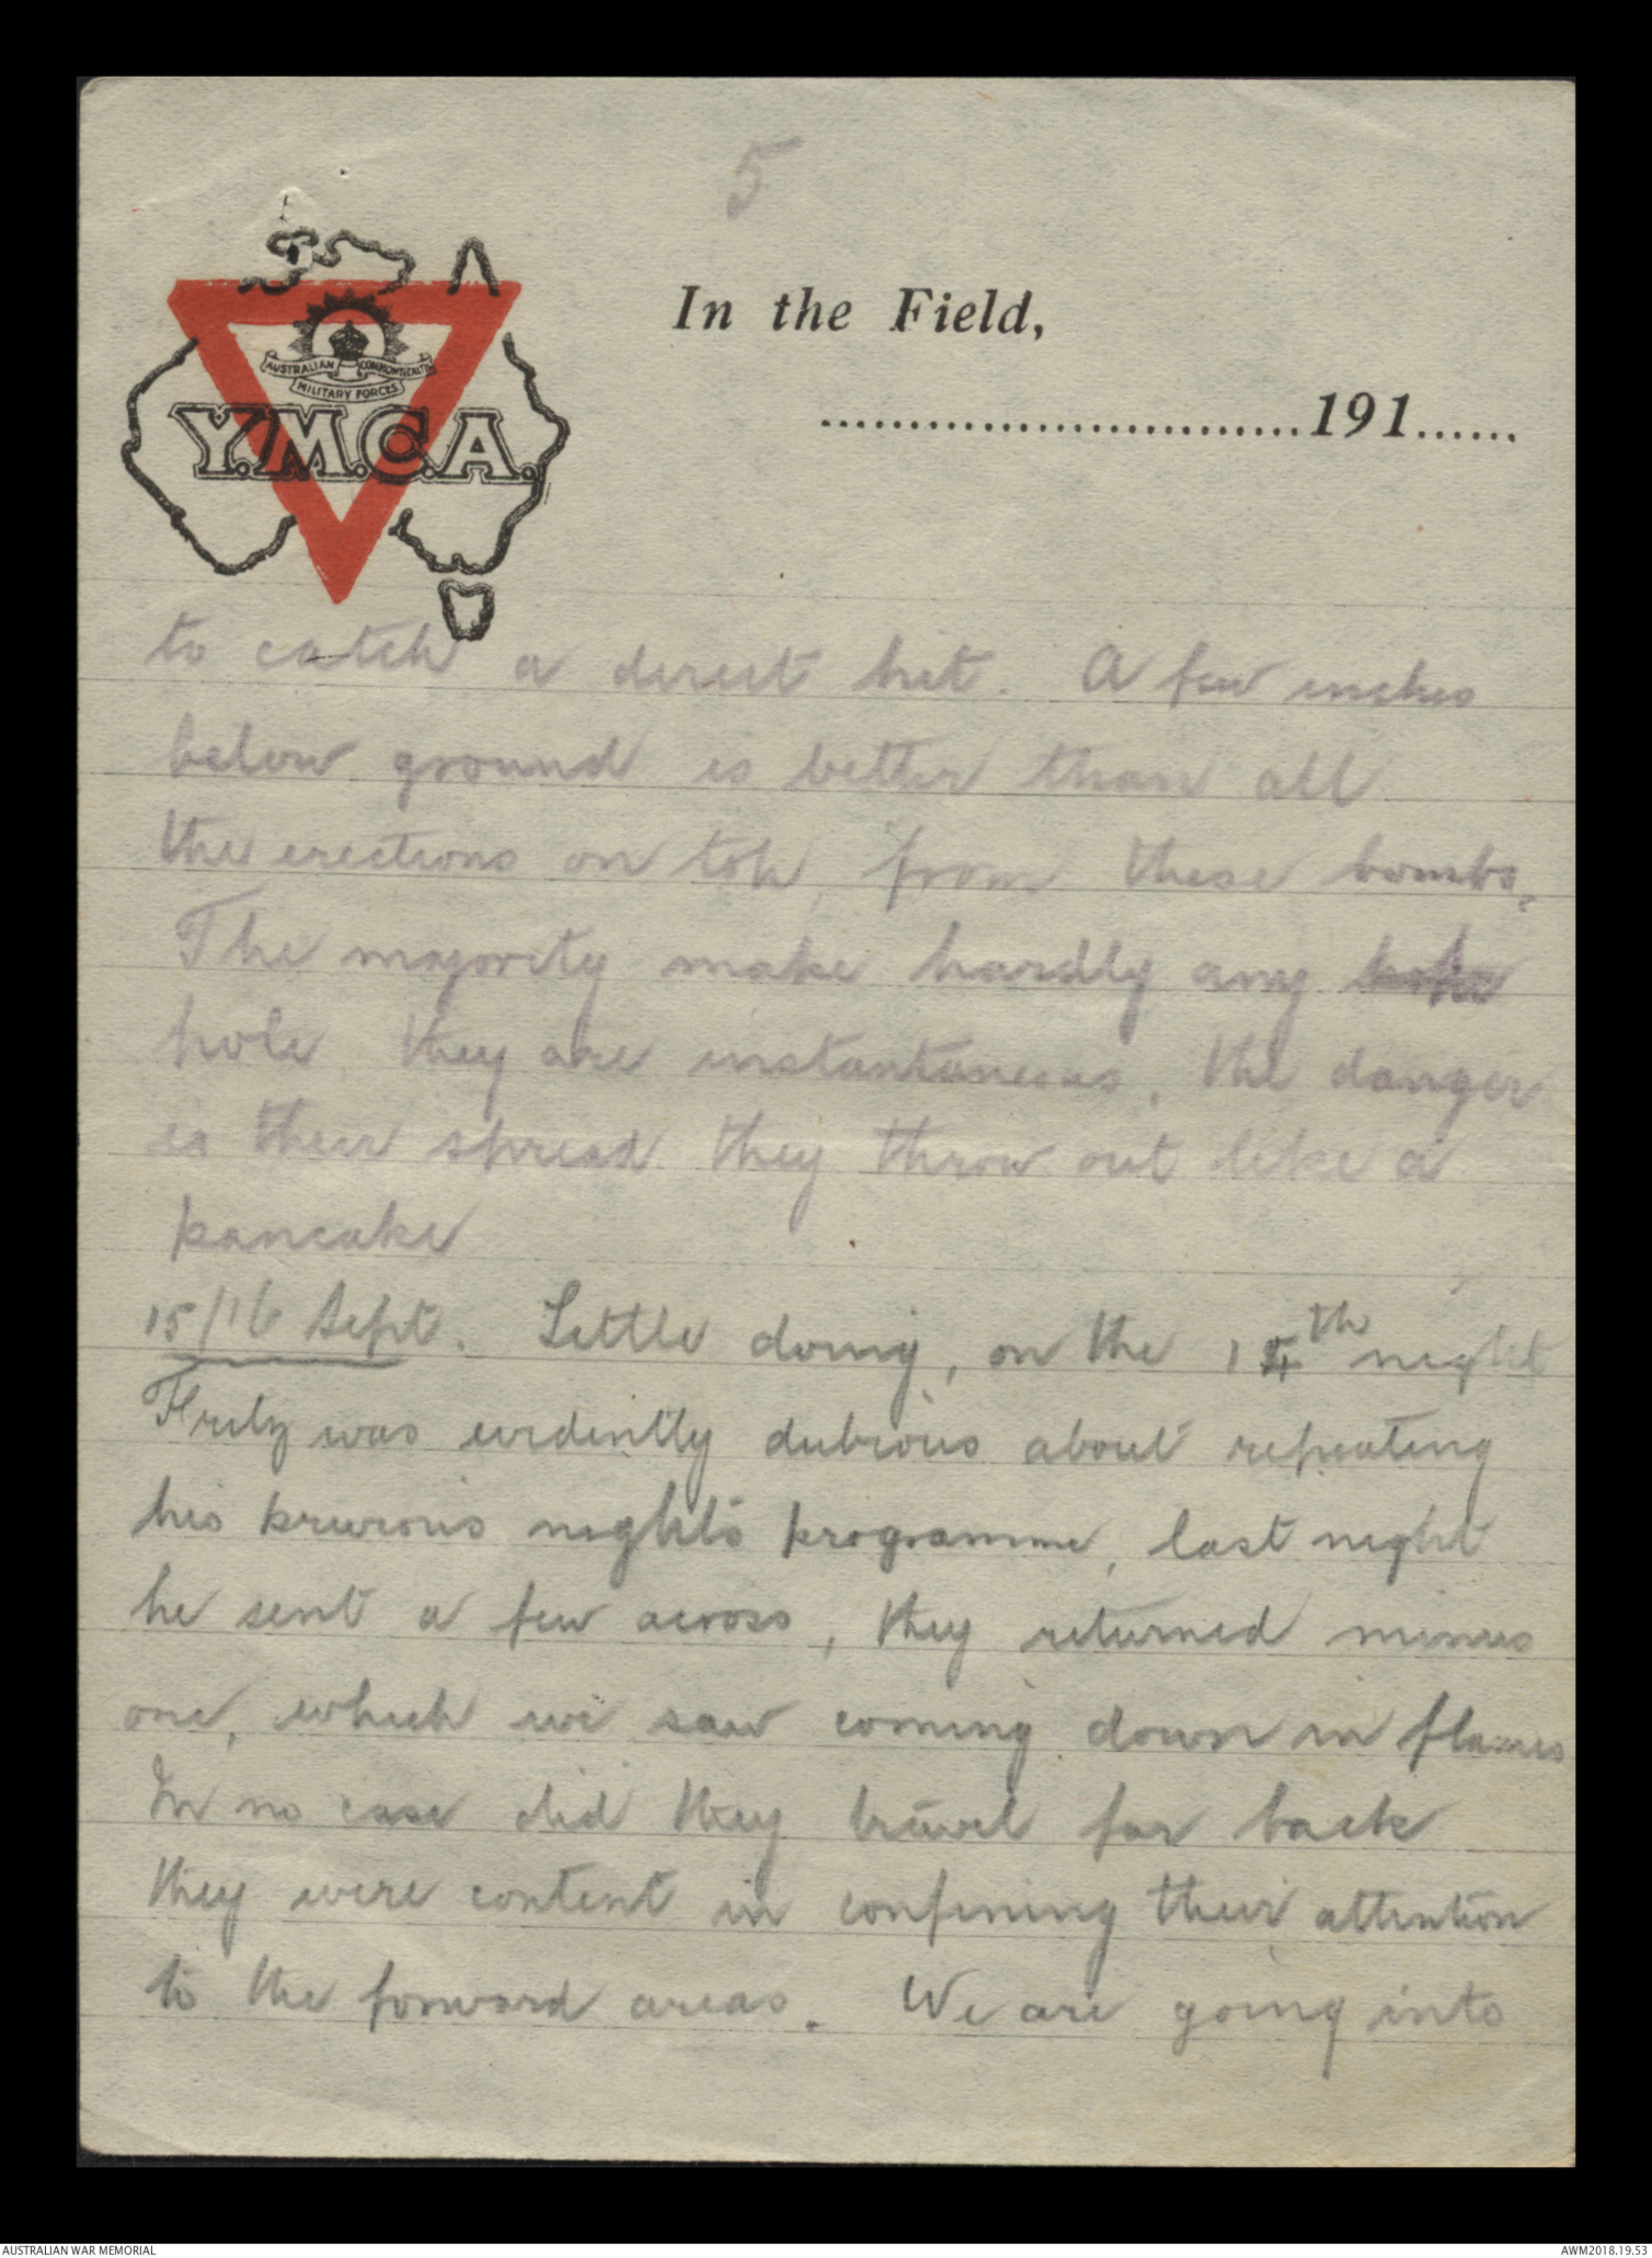 5
In the Field,
..............................191......
AUSTRALIAN COMMONWEALTH
MILITARY FORCES
Y.M.C.A.
to catch a direct hit. A few inches
below ground is better than all
the erections on top, from these bombs,
The majority make hardly any
hole, they are instantaneous, the danger
is their spread they throw out like a
pancake
15/16 Sept. Little doing, on the 14th night
Fritz was evidently dubious about repeating
his previous night's programme, last night
he sent a few across, they returned minus
one, which we saw coming down in flames
In no case did they travel far back
they were content in confining their attention
to the forward areas. We are going into
AUSTRALIAN WAR MEMORIAL
AWM2018.19.53